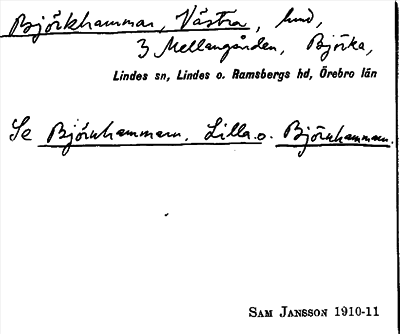 Björkhammar, Västra, hmd,
3 Mellangården, Björka,
Lindes sn, Lindes o. Ramsbergs hd, Örebro län
Se Björnhammarn, Lilla o. Björnhammarn.
SAM JANSSON 1910-11